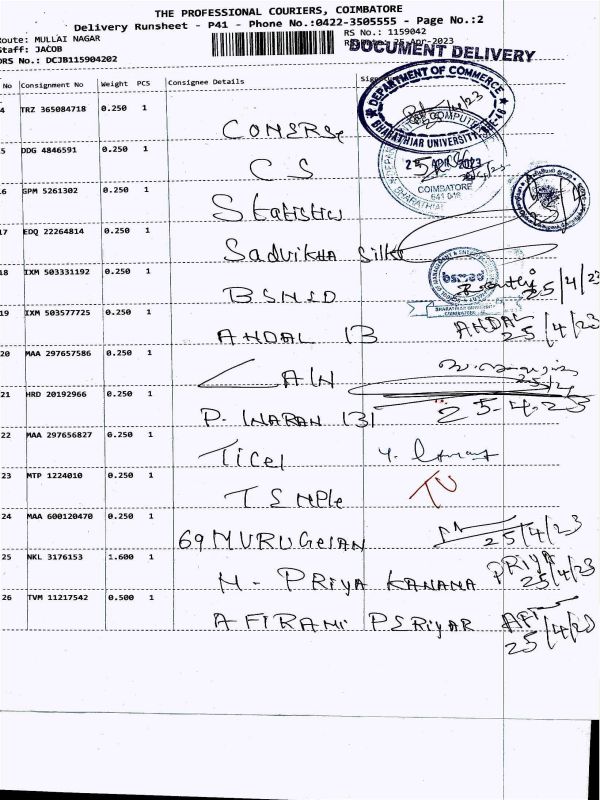 THE PROFESSIONAL COURIERS, COIMBATORE
Delivery Runsheet - P41 - Phone No.:0422-3505555 - Page No.:2
Route: MULLAI NAGAR
RS No.: 1159042
Staff: JACOB
25-Apr-2023
DOCUMENT DELIVERY
DRS No.: DCJB115904202
No Consignment No Weight PCS Consignee Details
4 TRZ 365084718 0.250 1
DEPARTMENT OF COMMERCE
BHARATHIAR UNIVERSITY
5 DDG 4846591 0.250 1
C S
COIMBATORE
6 GPM 5261302 0.250 1
Statistics
17 EDQ 22264814 0.250 1
Sadvikha Silks
18 IXM 503331192 0.250 1
bsmed
BHARATHIAR UNIVERSITY
25/4/23
19 IXM 503577725 0.250 1
ANDAL 13 ANDAL
25/4/23
20 MAA 297657586 0.250 1
21 HRD 20192966 0.250 1
25-4-23
22 MAA 297656827 0.250 1
TICEL
23 MTP 1224010 0.250 1
TU
24 MAA 600120470 0.250 1
69 MURUGESAN 25/4/23
25 NKL 3176153 1.600 1
M - PRIYA KANANA PRIYA
25/4/23
26 TVM 11217542 0.500 1
AFIRAMI PERIYAR AFI
25/4/23